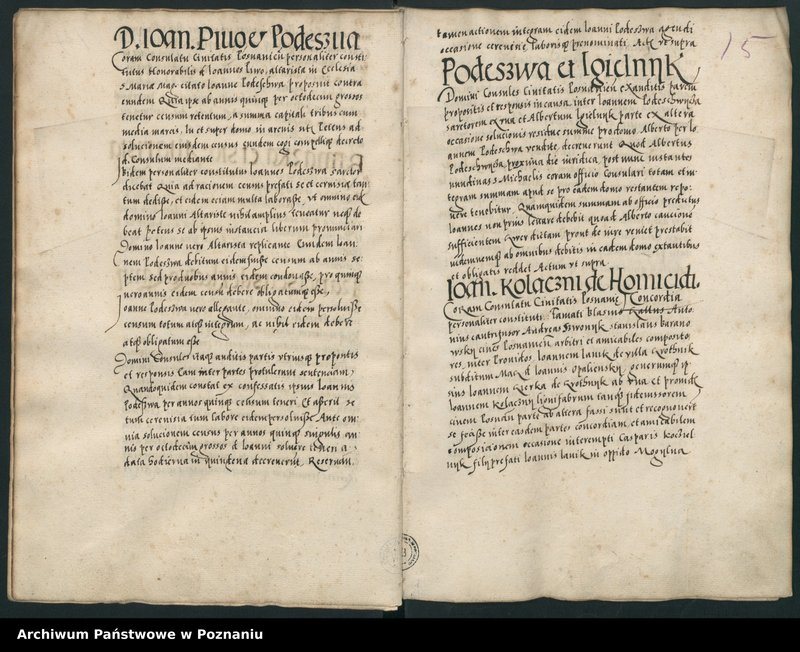 D. Ioan. Piwo et Podeszwa
Coram Consulatu Civitatis Posnanien personaliter consti
tutus Honorabilis d Ioannes Piwo, altarista in Ecclesia
S. Maria Mag. citato Ioanne Podeschwa proposuit contra
eundem Quia ipse ab annis quinque per octodecim grossos
tenetur censum retentum, a summa capitali tribus cum
media marcis. Petens ad
solucionem eiusdem census eundem cogi decreto
d. Consulum mediante
Ibidem personaliter constitutus Ioannes Podeszwa
dicebat Quia ad racionem census prefati se et cervisia
tum dedisse, et eidem eciam multa laborasse, ut omnino
domino Ioanni Altariste nihil amplius teneatur neque de
beat petens se ab ipsius instancia liberum pronunciari
Domino Ioanne vero Altarista replicante Eundem Ioan
nem Podeszwa debitum eidem fuisse censum ab annis se
ptem sed pro duobus annis eidem condonasse, pro quinque
vero annis eidem censum debere obligatumque esse,
Ioanne Podeszwa vero allegante, omnino eidem persolvisse
censum totum atque integrum, ac nihil eidem debere
atque obligatum esse
Domini Consules itaque auditis partis utriusque propositis
et responsis talem inter partes protulerunt sentenciam,
Quandoquidem constat ex confessatis ipsius Ioannis
Podeszwa per annos quinque censum teneri Et asserit se
tum cerevisia tum labore eidem persolvisse Ante om
nia solucionem census per annos quinque singulis an
nis per octodecim grossos d Ioanni solvere teneri a
data hodierna in quindena decreverunt, Reservan.
15
tamen actionem integram eidem Ioanni Podeszwa agendi
occasione cerevisie laborisque prenominati Acta ut supra
Podeszwa et Igielnyk
Domini Consules Civitatis Posnanien exauditis parcium
propositis et responsis in causa, inter Ioannem Podeschwa
sartorem ex una et Albertum Igielnyk parte ex altera
occasione solucionis residue summe pro domo Alberto per Io
annem Podeschwa vendite, decreverunt Quod Albertus
Podeschwa proxima die iuridica post nunc instantes
nundinas S Michaelis coram officio Consulari totam et in
tegram summam apud se pro eadem domo restantem repo
nere tenebitur, Quamquidem summam ab officio predictus
Ioannes non prius levare debebit quoad Alberto caucione
sufficientem super dictam prout de iure venit prestabit
eandemque ab omnibus debitis in eadem domo extantibus
et obligatis reddet Actum ut supra.
Ioan. Kolaczni de Homicidi.
Coram Consulatu Civitatis Posnanie Concordia
personaliter constituti Famati Blasius Anto
nius cantrifusor Andreas Stanislaus Barano
wsky cives Posnanien arbitri et amicabiles composito
res, inter Providos Ioannem Lanik de villa Krothnik
subditum Mag. d Ioannis Opalienski
nius Ioannem de Krothnik ab una et provid
Ioannem Kolaczny lignifabrum
civem Posnan parte ab altera fassi sunt et recognoverunt
se fecisse inter easdem partes concordiam, et amicabilem
composicionem occasione interempti Casparis
nyk filij prefati Ioannis Lanik in oppido Mogylna
Archiwum Państwowe w Poznaniu